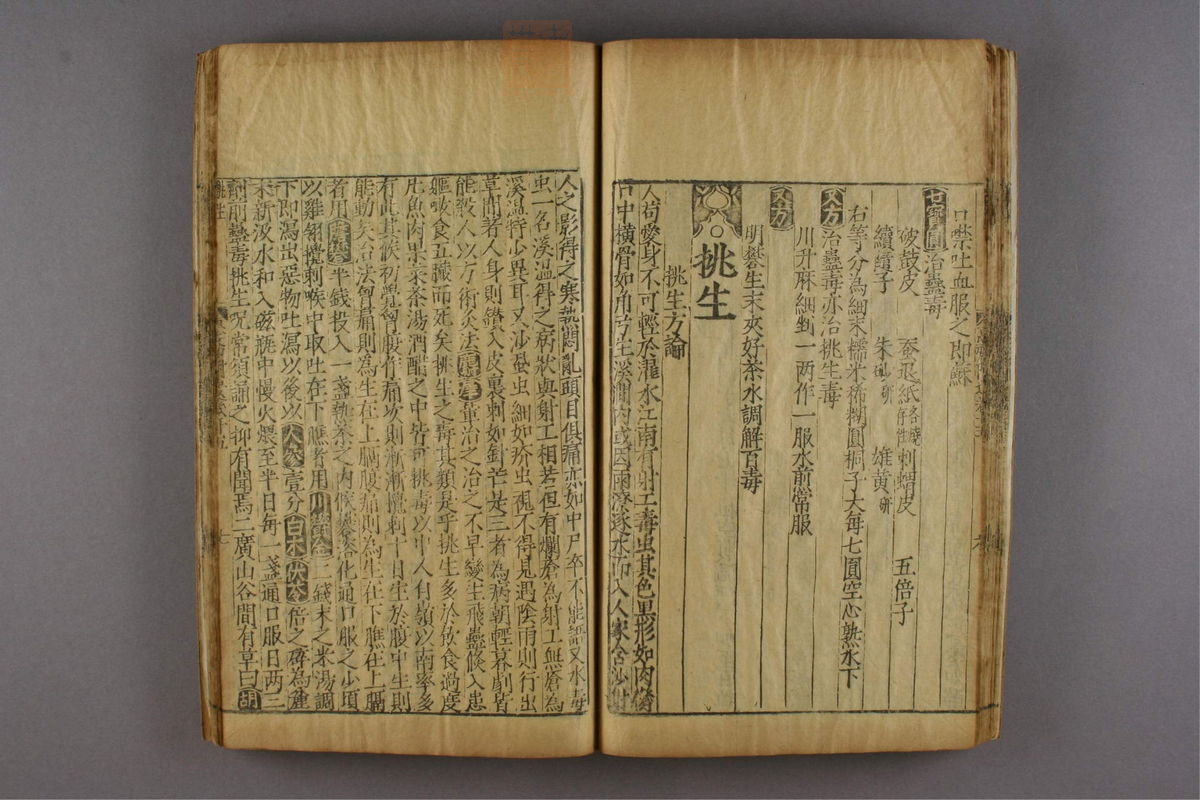 口噤吐血服之即蘇
七寶圓治蠱毒
破鼓皮 蚕退紙各燒存性 刺蝟皮 五倍子
續隨子 朱砂研 雄黃研
右等分為細末糯米稀糊圓桐子大每七圓空心熟水下
又方治蠱毒亦治挑生毒
川升麻細剉一两作一服水煎常服
又方
明礬生末夾好茶水調解百毒
挑生
挑生方論
人苟愛身不可輕於濯水江南有射工毒虫其色黑形如肉
口中横骨如角弓生溪澗内或因雨潦逐水而入人家含沙射
人之影得之寒熱悶亂頭目俱痛亦如中尸卒不能語又水毒
虫一名溪温得之病狀與射工相若但有爛瘡為射工無瘡為
溪温特少異耳又沙蝨虫細如疥虫視不得見遇陰雨則行出
草間着人身則鑽入皮裏刺如針芒是三者為病朝輕暮劇皆
能殺人以方術灸法董治之治之不早變生飛蠱倏入患
軀啖食五臟而死矣挑生之毒其類是乎挑生多於飲食過度
凡魚肉果菜茶湯酒醋之中皆可挑毒以中人自嶺以南率多
有此其候初覺胷腹作痛次則漸漸攪刺十日生於腹中生則
能動矣治法胷痛則為生在上膈腹痛則為生在下膲在上膈
者用膽礬半錢投入一盞熱茶之内候礬溶化通口服之少頃
以雞翎攪刺喉中取吐在下膲者用川欝金二錢末之米湯調
下即瀉出惡物吐瀉以後以人參壹分白术茯苓倍之碎為麄
末新汲水和入磁瓶中慢火煨至半日每一盞通口服日两三
劑前蠱毒挑生呪常須誦之抑有聞焉二廣山谷間有草曰胡
挑生